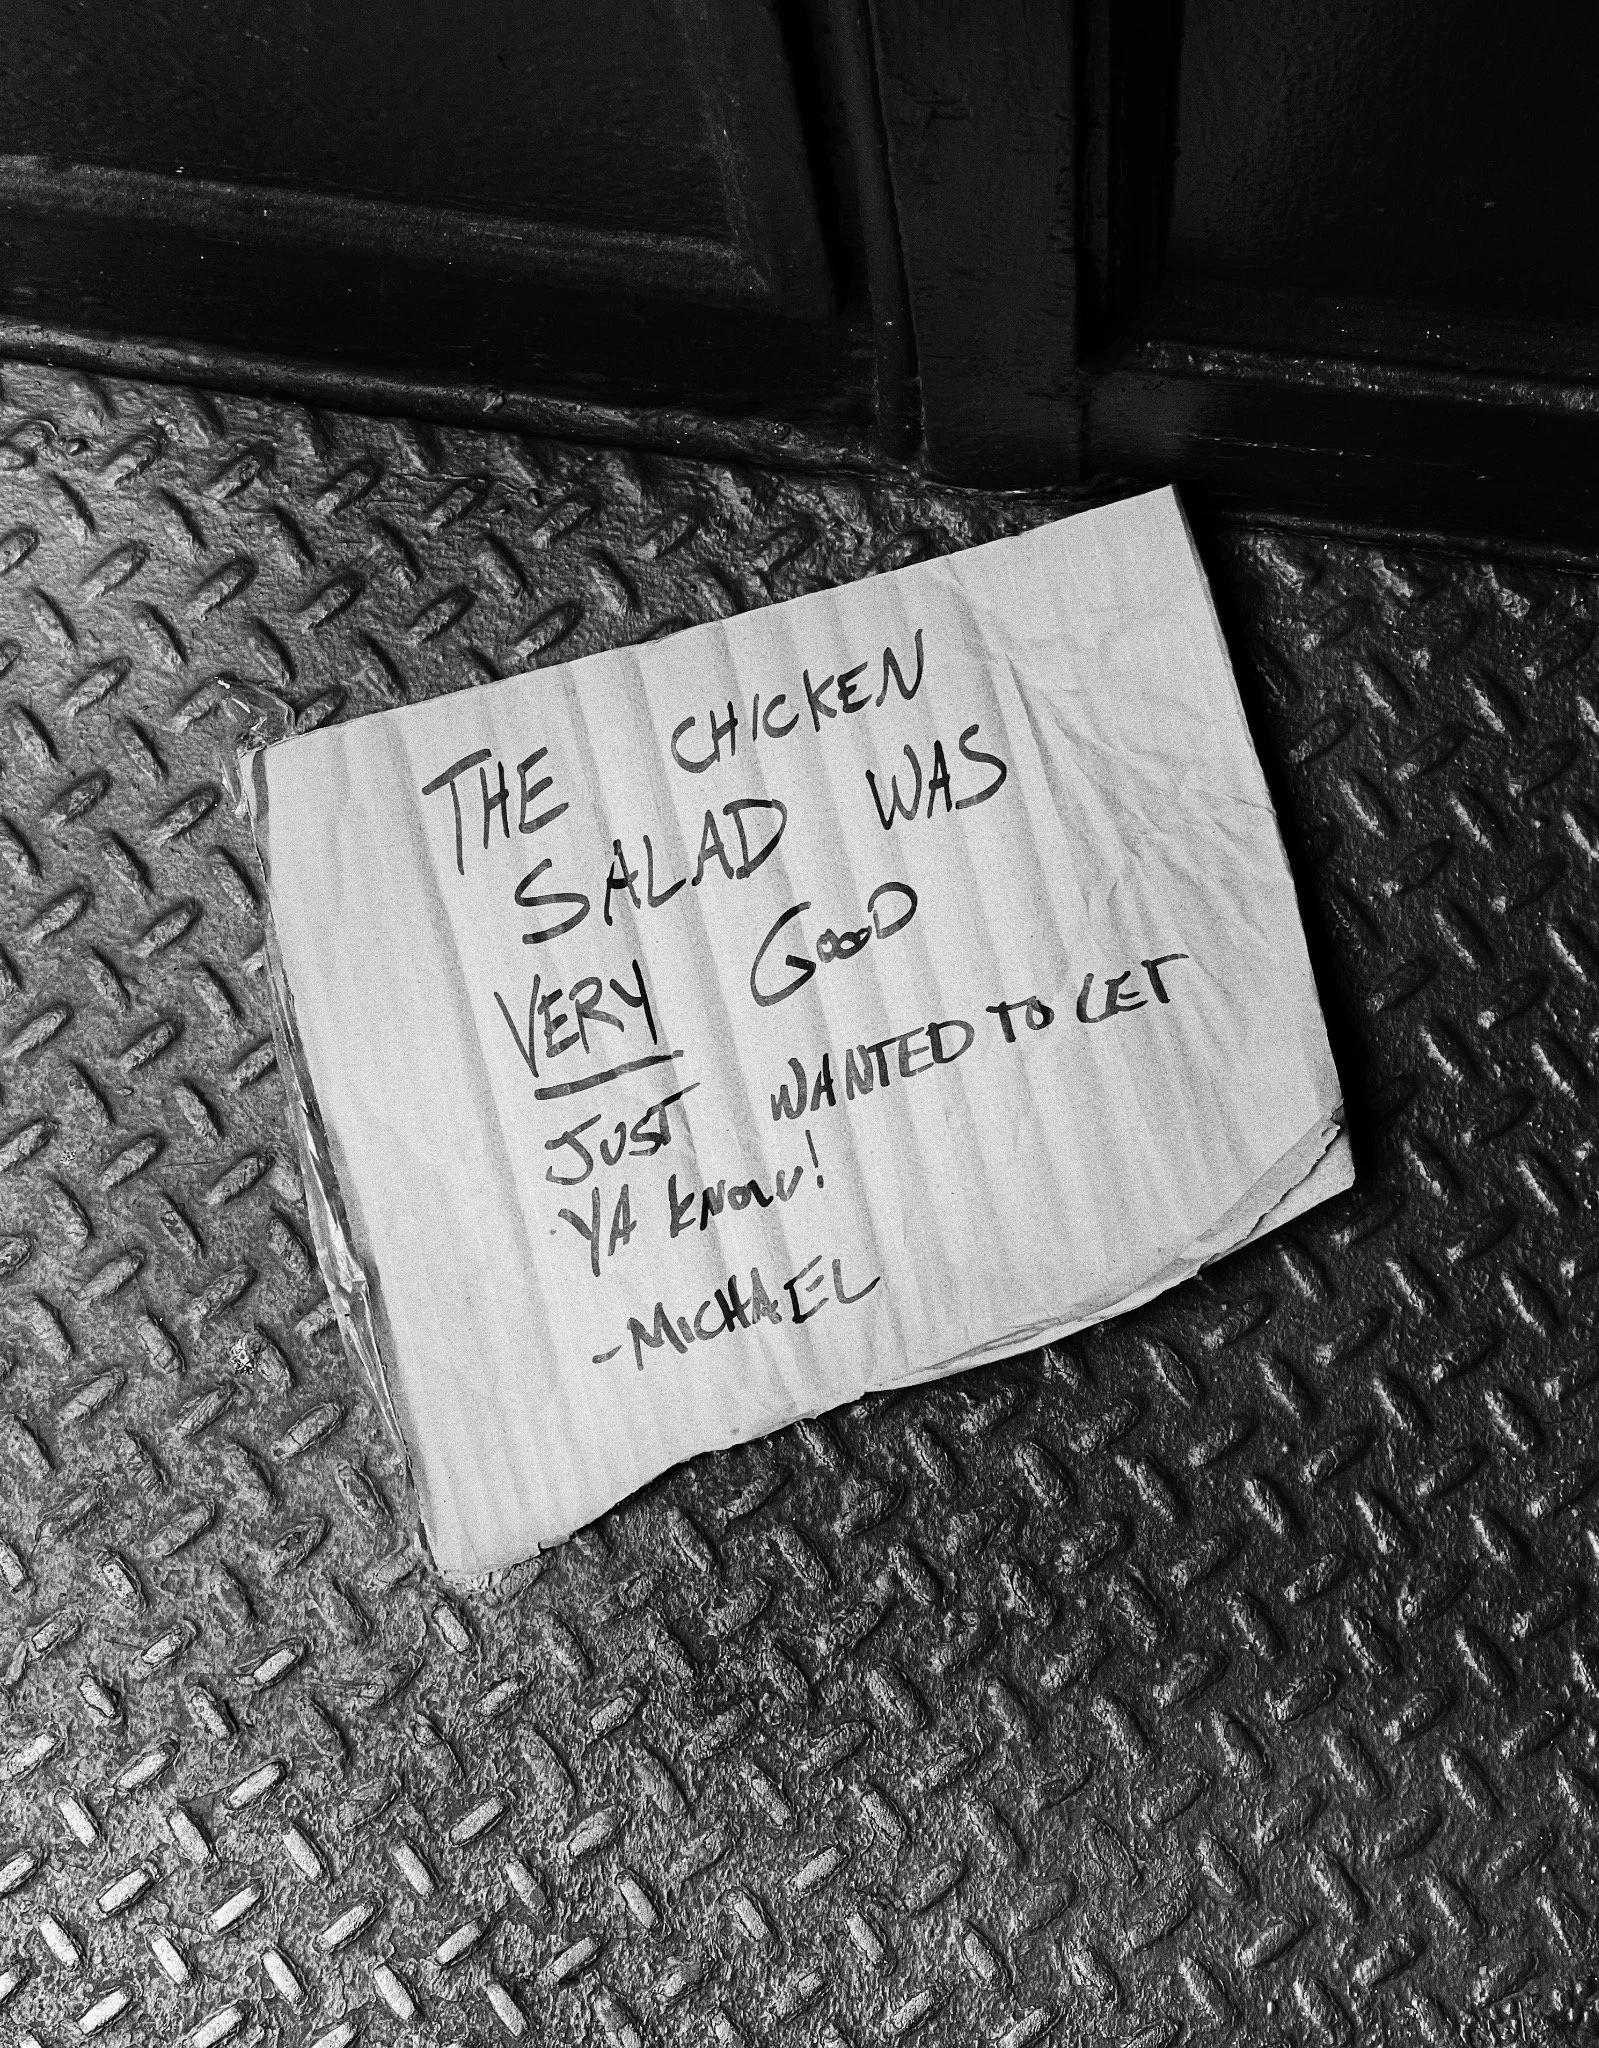 THE CHICKEN
SALAD WAS
VERY GOOD
JUST WANTED TO LET
YA KNOW!
-MICHAEL